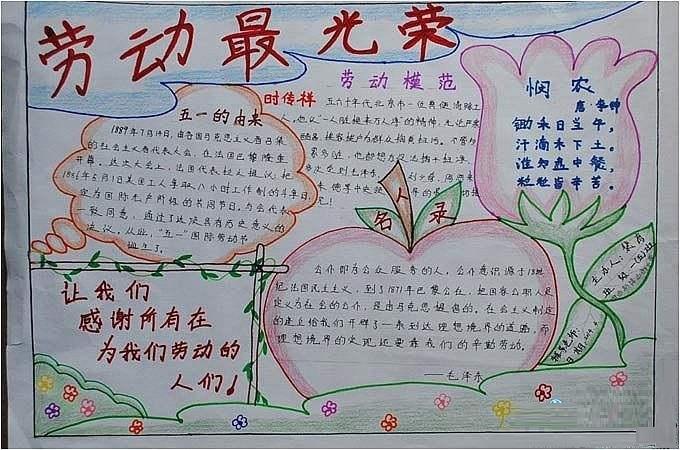 劳动最光荣
五一的由来
1889年7月14日,由各国马克思主义者召集
的社会主义者代表大会,在法国巴黎隆重
开幕。这次大会上,法国代表拉人提议:把
1886年5月1日美国工人争取八小时工作制的斗争日,
定为国际无产阶级的共同节日。与会代表
一致同意,通过了这项具有历史意义的
决议。从此,“五一”国际劳动节
诞生了。
劳动模范
时传祥
五六十年代北京市一位粪便清除工
人。他以“一人脏换来万人净”的精神,
悯农
唐·李绅
锄禾日当午,
汗滴禾下土。
谁知盘中餐,
粒粒皆辛苦。
名人录
公仆即为公众服务的人,公仆意识源于18世
纪法国民主主义,到了1871年巴黎公社,把国家公职人员
定义为社会的公仆,是由马克思提倡的,在社会主义制定
的建立给我们开辟了一条到达理想境界的道路,而
理想境界的实现还要靠我们的辛勤劳动。
——毛泽东
让我们
感谢所有在
为我们劳动的
人们!
主办人:
班级:
日期: